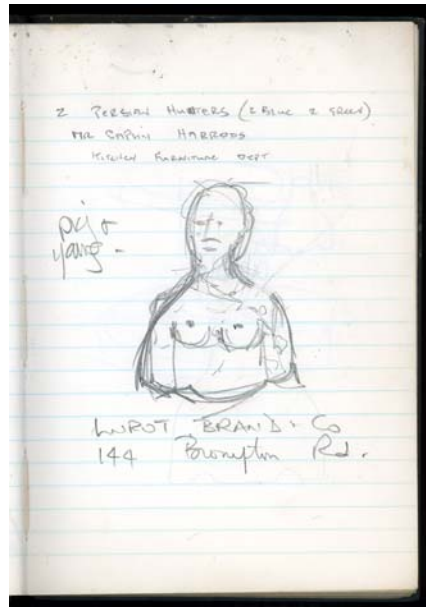 2 PERSIAN HUNTERS (2 BLUE 2 GREEN)
MR HARRODS
KITCHEN FURNITURE DEPT
pig &
young -
BRAND & Co
144 Brompton Rd.